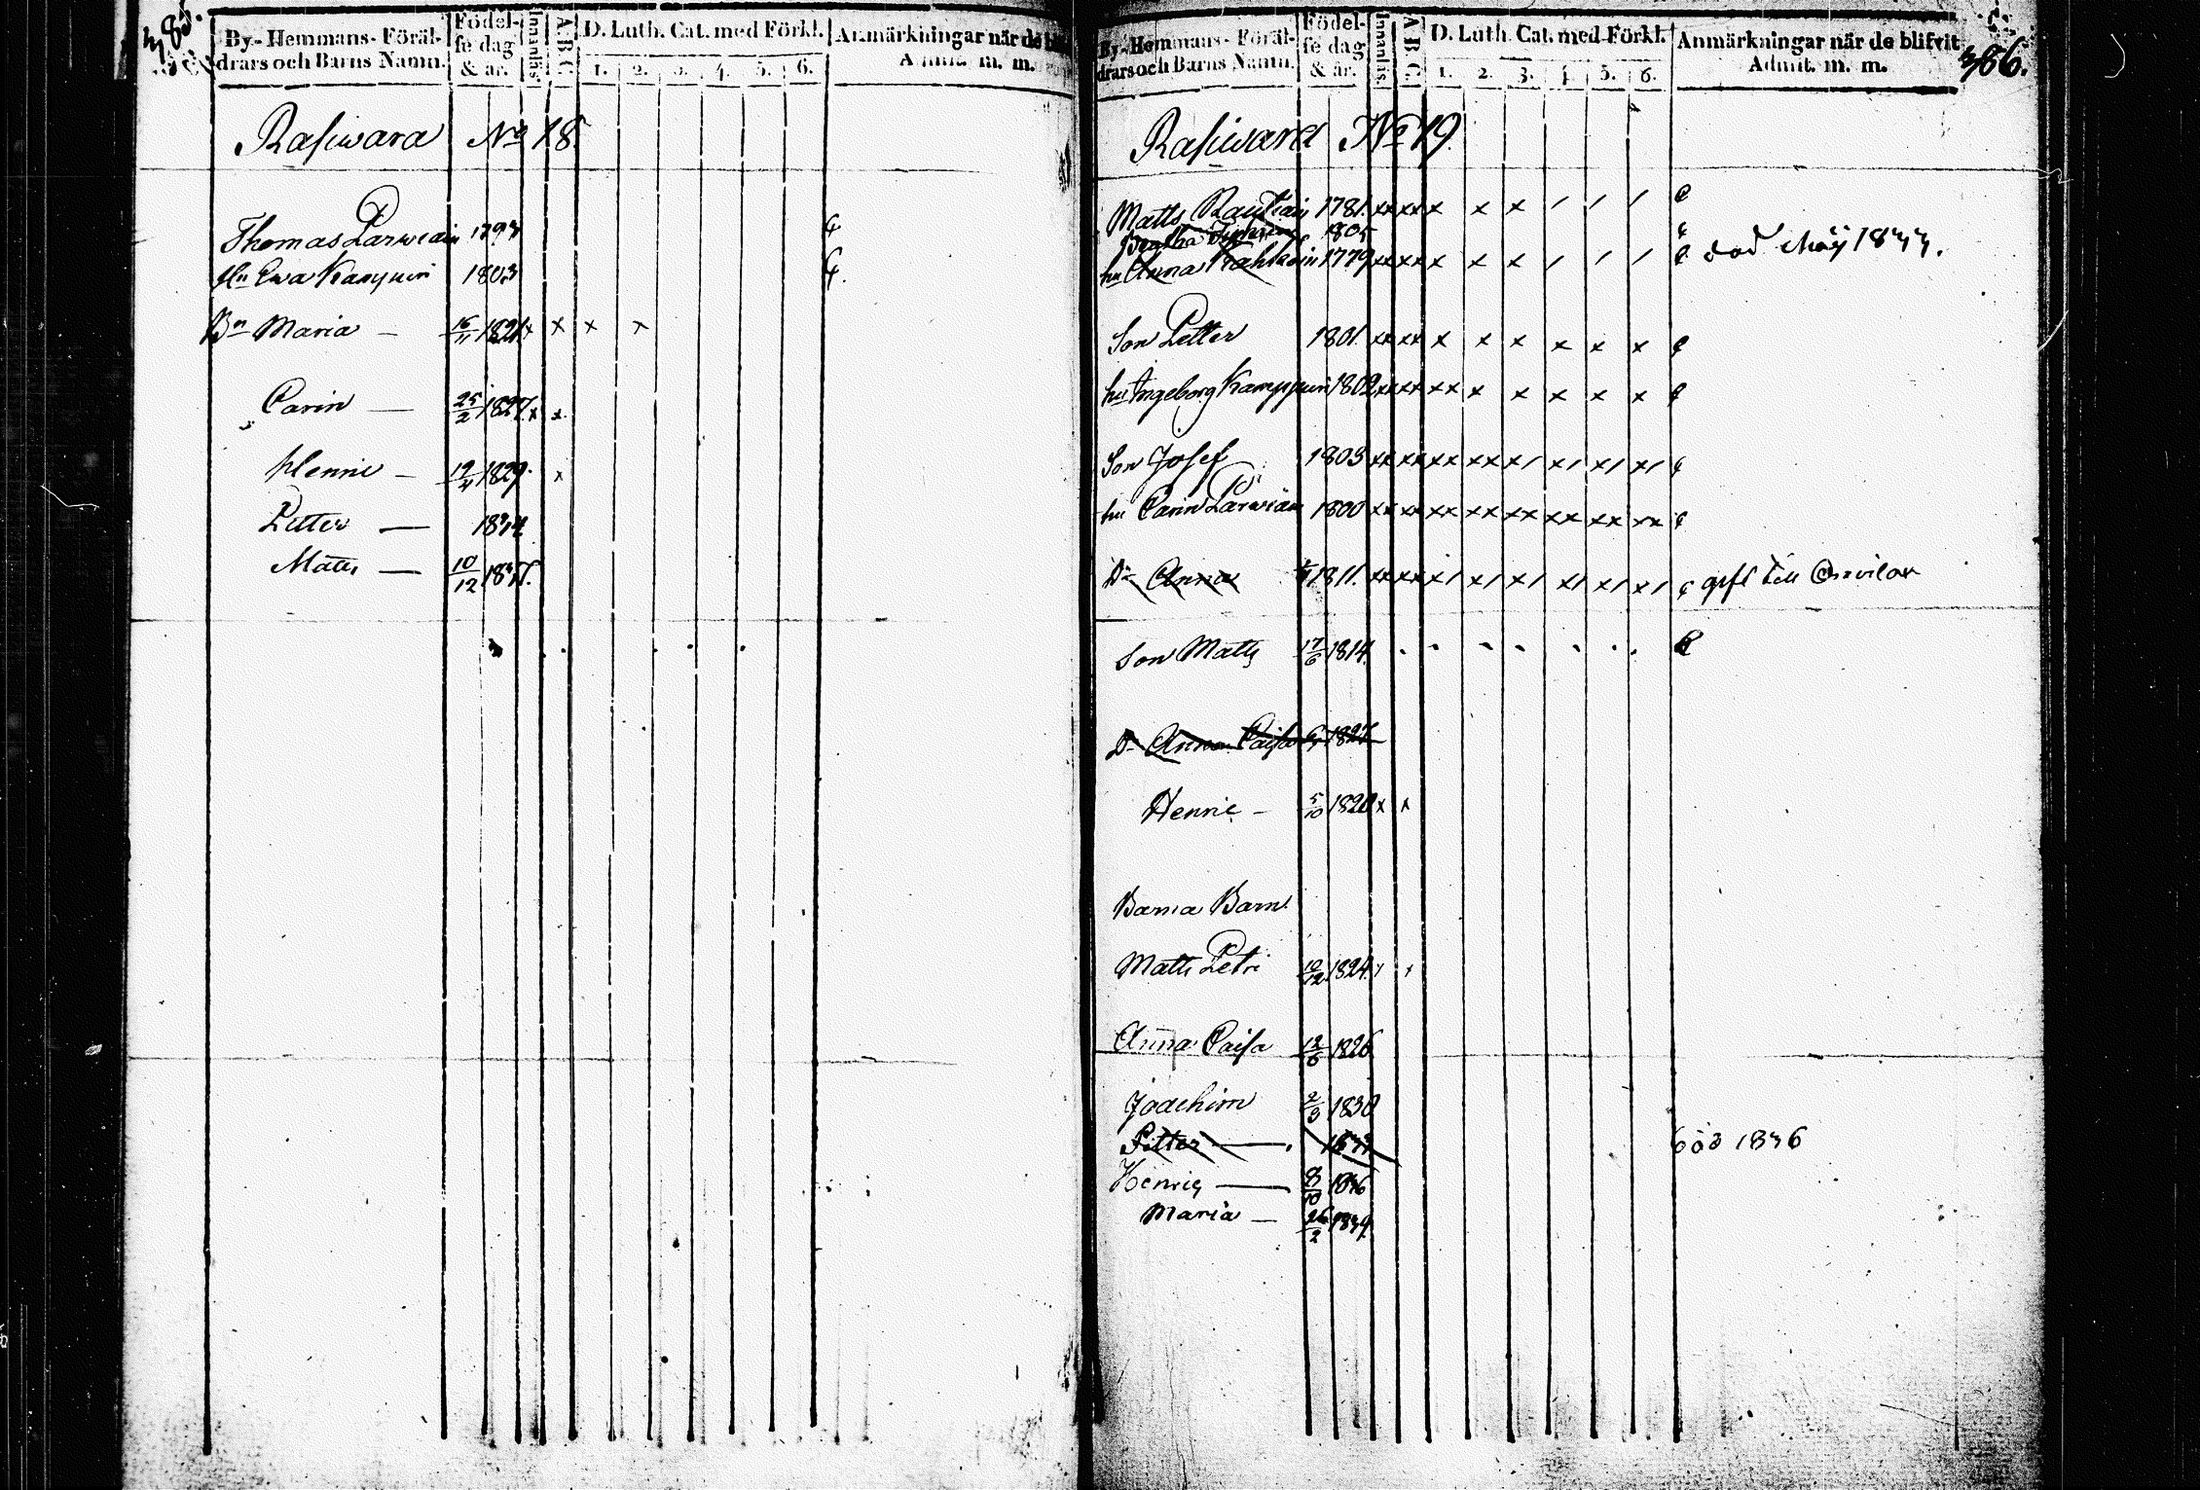 385.
By-Hemmans-Föräl-
drars och Barns Namn.
Födel-
se dag
& år.
Innanläs.
A B C.
D. Luth. Cat. med Förkl.
1. 2. 3. 4. 5. 6.
Anmärkningar när de
m. m.
Rasiwara No 18.
Thomas Parwiain 179
Hu Ewa Kamppuri 1803
Bn Maria — 16/11 1821 x x x x
Carin — 25/2 1827 x x
Henric — 19/4 1829. x
Petter — 1834
Matts — 10/12 1837.
386.
By-Hemmans-Föräl-
drars och Barns Namn.
Födel-
se dag
& år.
Innanläs.
A B C.
D. Luth. Cat. med Förkl.
1. 2. 3. 4. 5. 6.
Anmärkningar när de blifvit
Admit. m. m.
Rasiwara No 19
Matts Rautiain 1781. xx xx x x x / / /
Beatha 1805
hu Anna Kahkoin 1779 xx xx x x x / / / död Maij 1833.
Son Petter 1801. xx xx x x x x x x
hu Ingeborg Kamppuri 1802 xx xx xx x x x x x
Son Josef 1803 xx xx xx xx x/ x/ x/ x/
hu Carin Parwiain 1800 xx xx xx xx xx xx xx xx
Dr Anna 1811. xx xx x/ x/ x/ x/ x/ x/ gift till
Son Matts 17/6 1814.
Dr Anna Caisa 1827
Henric — 5/10 1820 x x
Barna Barn
Matts Petri 10/12 1824.
Anna Caisa 12/6 1826
Joachim 2/3 1830
Petter — 1833 död 1836
Henric — 8/10 1836
Maria — 26/2 1839.